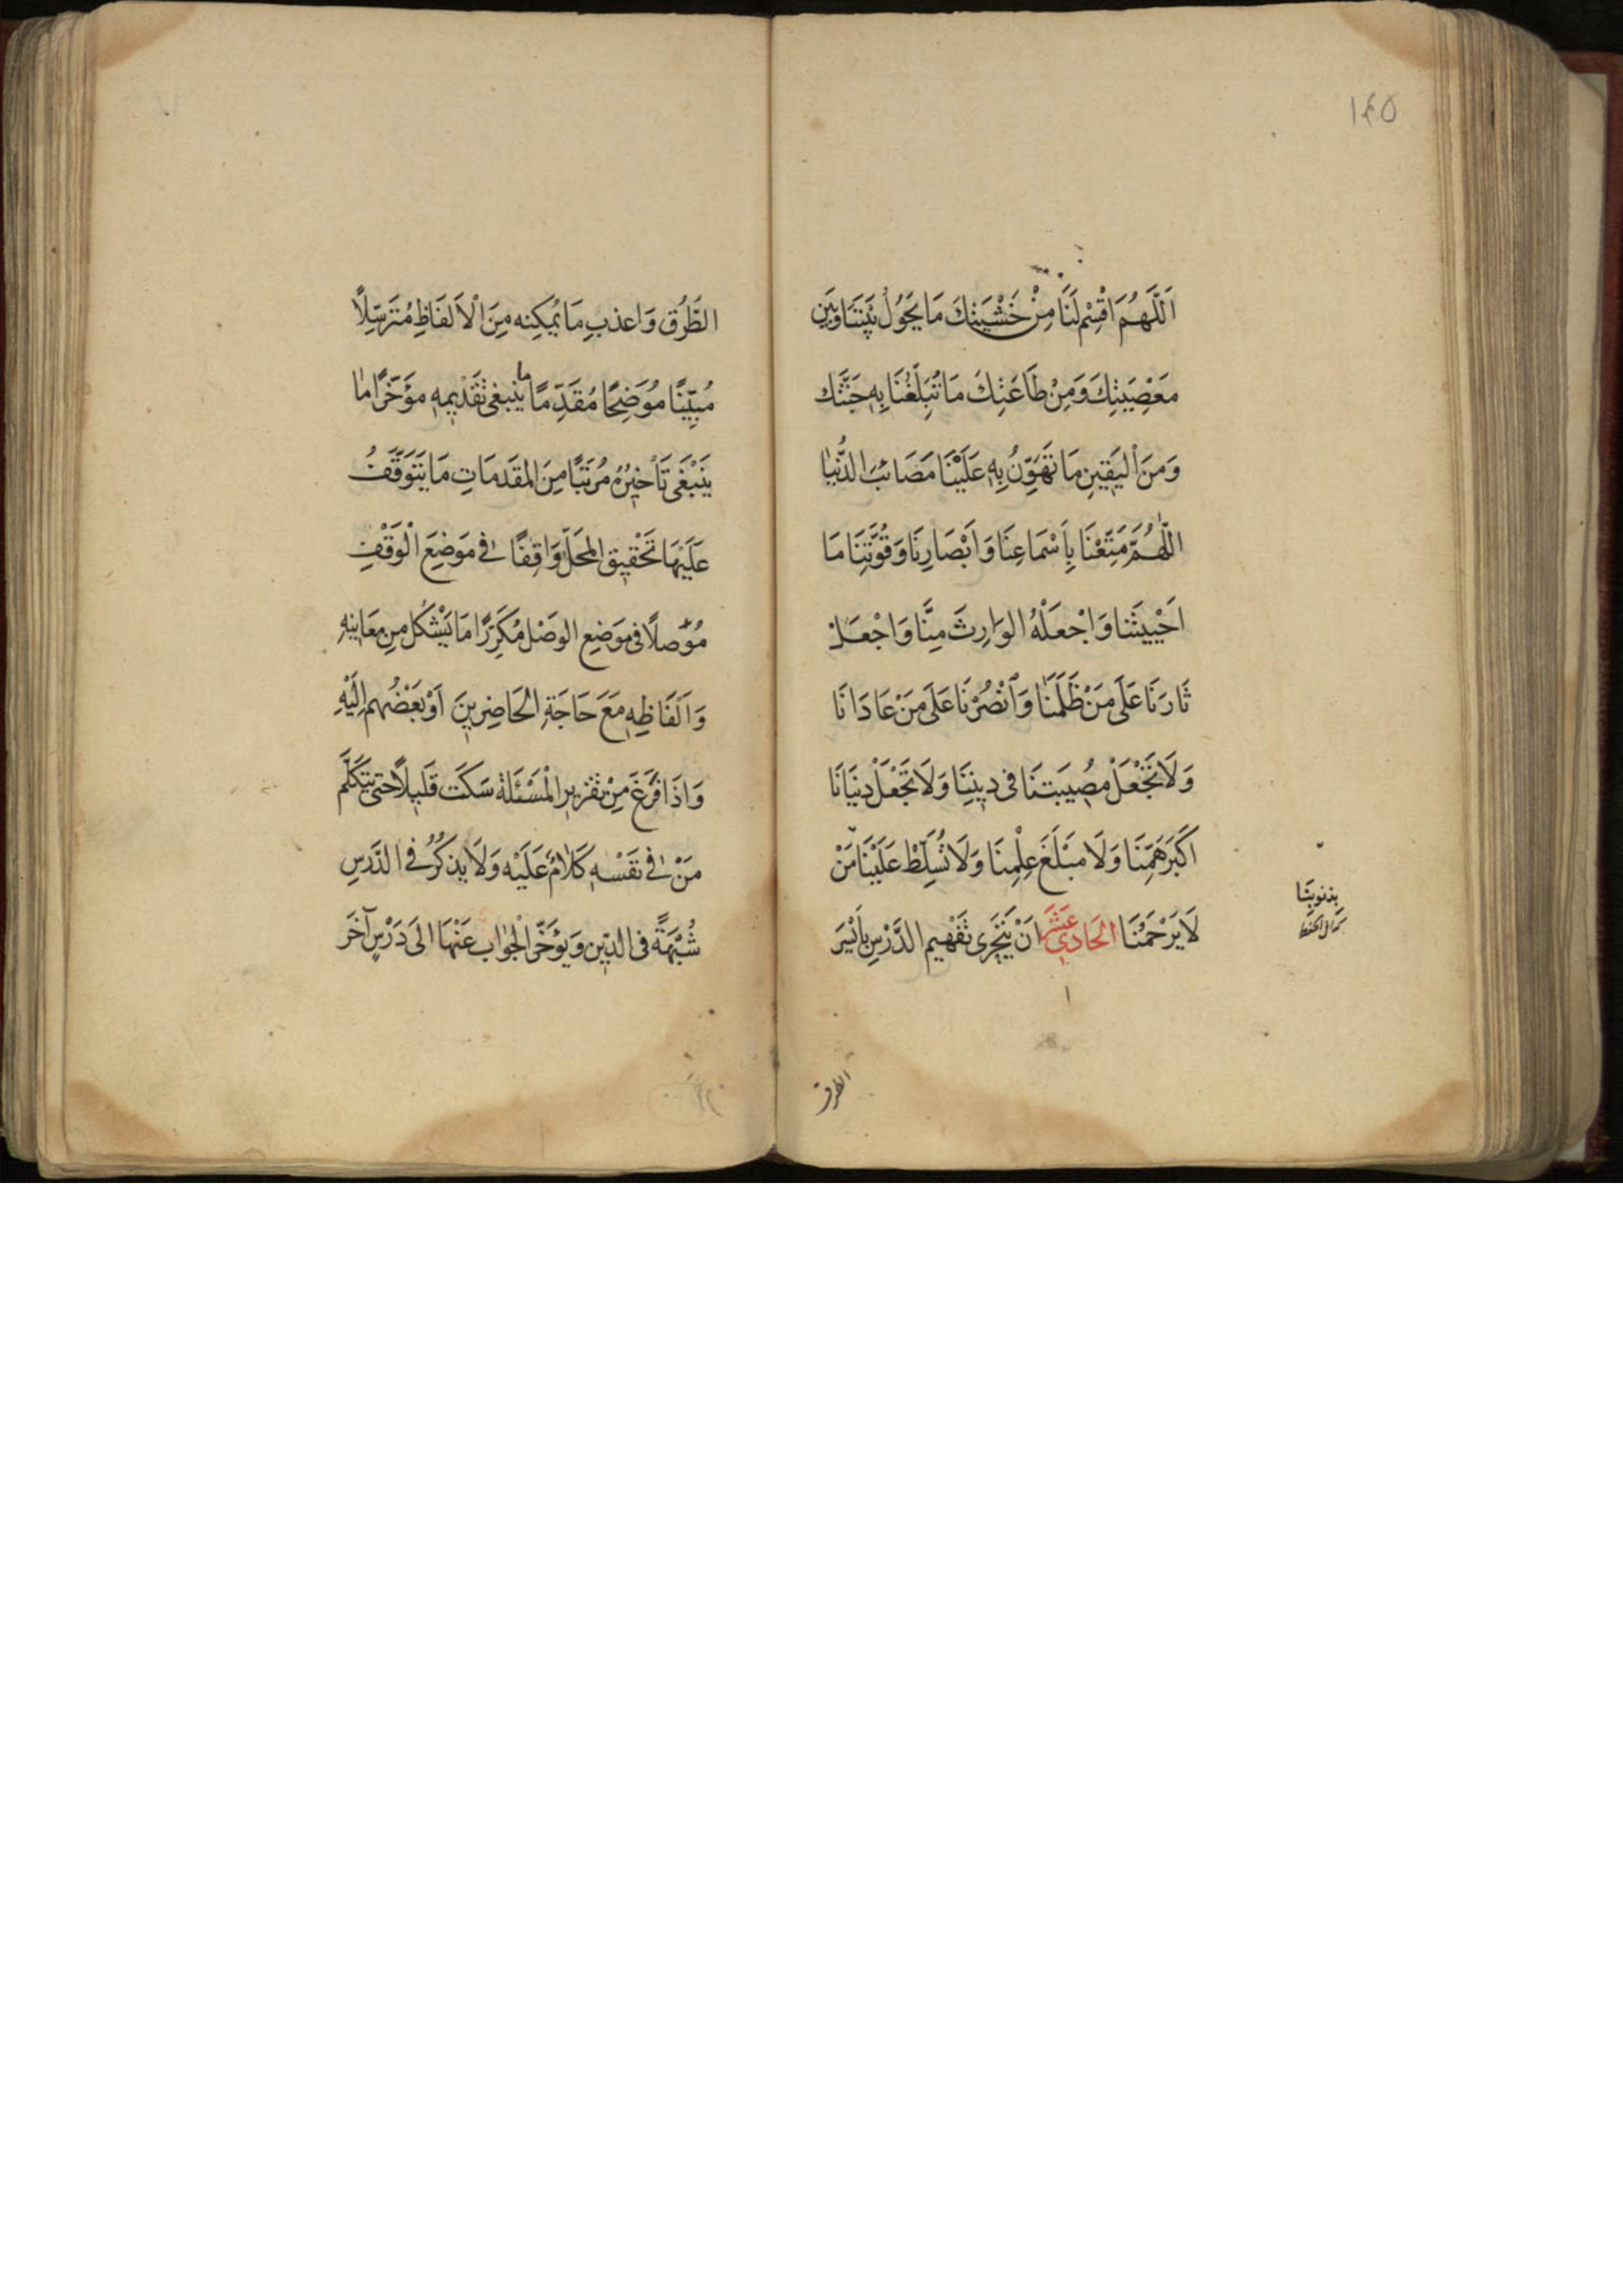 ١٤٥
اَللَّهُمَّ اقْسِمْ لَنَا مِنْ خَشْيَتِكَ مَا يَحُوْلُ بَيْنَنَا وَبَيْنَ
مَعْصِيَتِكَ وَمِنْ طَاعَتِكَ مَا تُبَلِّغُنَا بِهِ جَنَّتَكَ
وَمِنَ الْيَقِينِ مَا تُهَوِّنُ بِهِ عَلَيْنَا مَصَائِبَ الدُّنْيَا
اللّٰهُمَّ مَتِّعْنَا بِاَسْمَاعِنَا وَاَبْصَارِنَا وَقُوَّتِنَا مَا
اَحْيَيْتَنَا وَاجْعَلْهُ الوَارِثَ مِنَّا وَاجْعَلْ
ثَارَنَا عَلَى مَنْ ظَلَمَنَا وَانْصُرْنَا عَلَى مَنْ عَادَانَا
وَلَا تَجْعَلْ مُصِيبَتَنَا فى دِينِنَا وَلَا تَجْعَلْ دنْيَانَا
اَكْبَرَ هَمِّنَا وَلَا مَبْلَغَ عِلْمِنَا وَلَا تُسَلِّطْ عَلَيْنَا مَنْ
لَا يَرْحَمُنَا الحَادِى عَشَرَ اَنْ يَتَحَرّى تَفْهِيمِ الدَّرْسِ بِاَيْسَرِ
بذنوبنا
الطرق
الطُّرُقِ وَاعذبِ مَا يُمْكِنه مِنَ الْاَلفَاظِ مُتَرَسِّلًا
مُبَيِّنًا مُوَضِحًا مُقَدِّمًا ما ينبغى تَقْدِيمه مؤَخِّرًا مَا
يَنْبَغى تَأْخيْرُهُ مُرَتِّبًا مِنَ المقَدمَاتِ مَا يَتَوَقَّفُ
عَلَيْهَا تَحْقِيق المحَلِّ وَاقِفًا فى مَوضِعَ الْوَقْفِ
مُوَصلًا فى مَوَضِعِ الوصْل مُكَرِّرًا مَا يَشْكُل مِن مَعَانِيْهِ
وَاَلْفَاظِهِ مَعَ حَاجَةِ الحَاضِرِينَ اَوْ بَعْضُهم اِلَيْهِ
وَاذَا فَرَغَ مِنْ تقْرِيرِ الْمَسْئَلة سَكَتَ قَلِيلًا حتى يتَكَلَّم
مَنْ فى نفْسْه كَلَامٌ عَلَيْه وَلَا يذكُرُ فى الدَّرسِ
شُبْهَةً فى الدّين وَيؤخّر الْجوَاب عَنْهَا الى دَرْسٍ آخَرَ